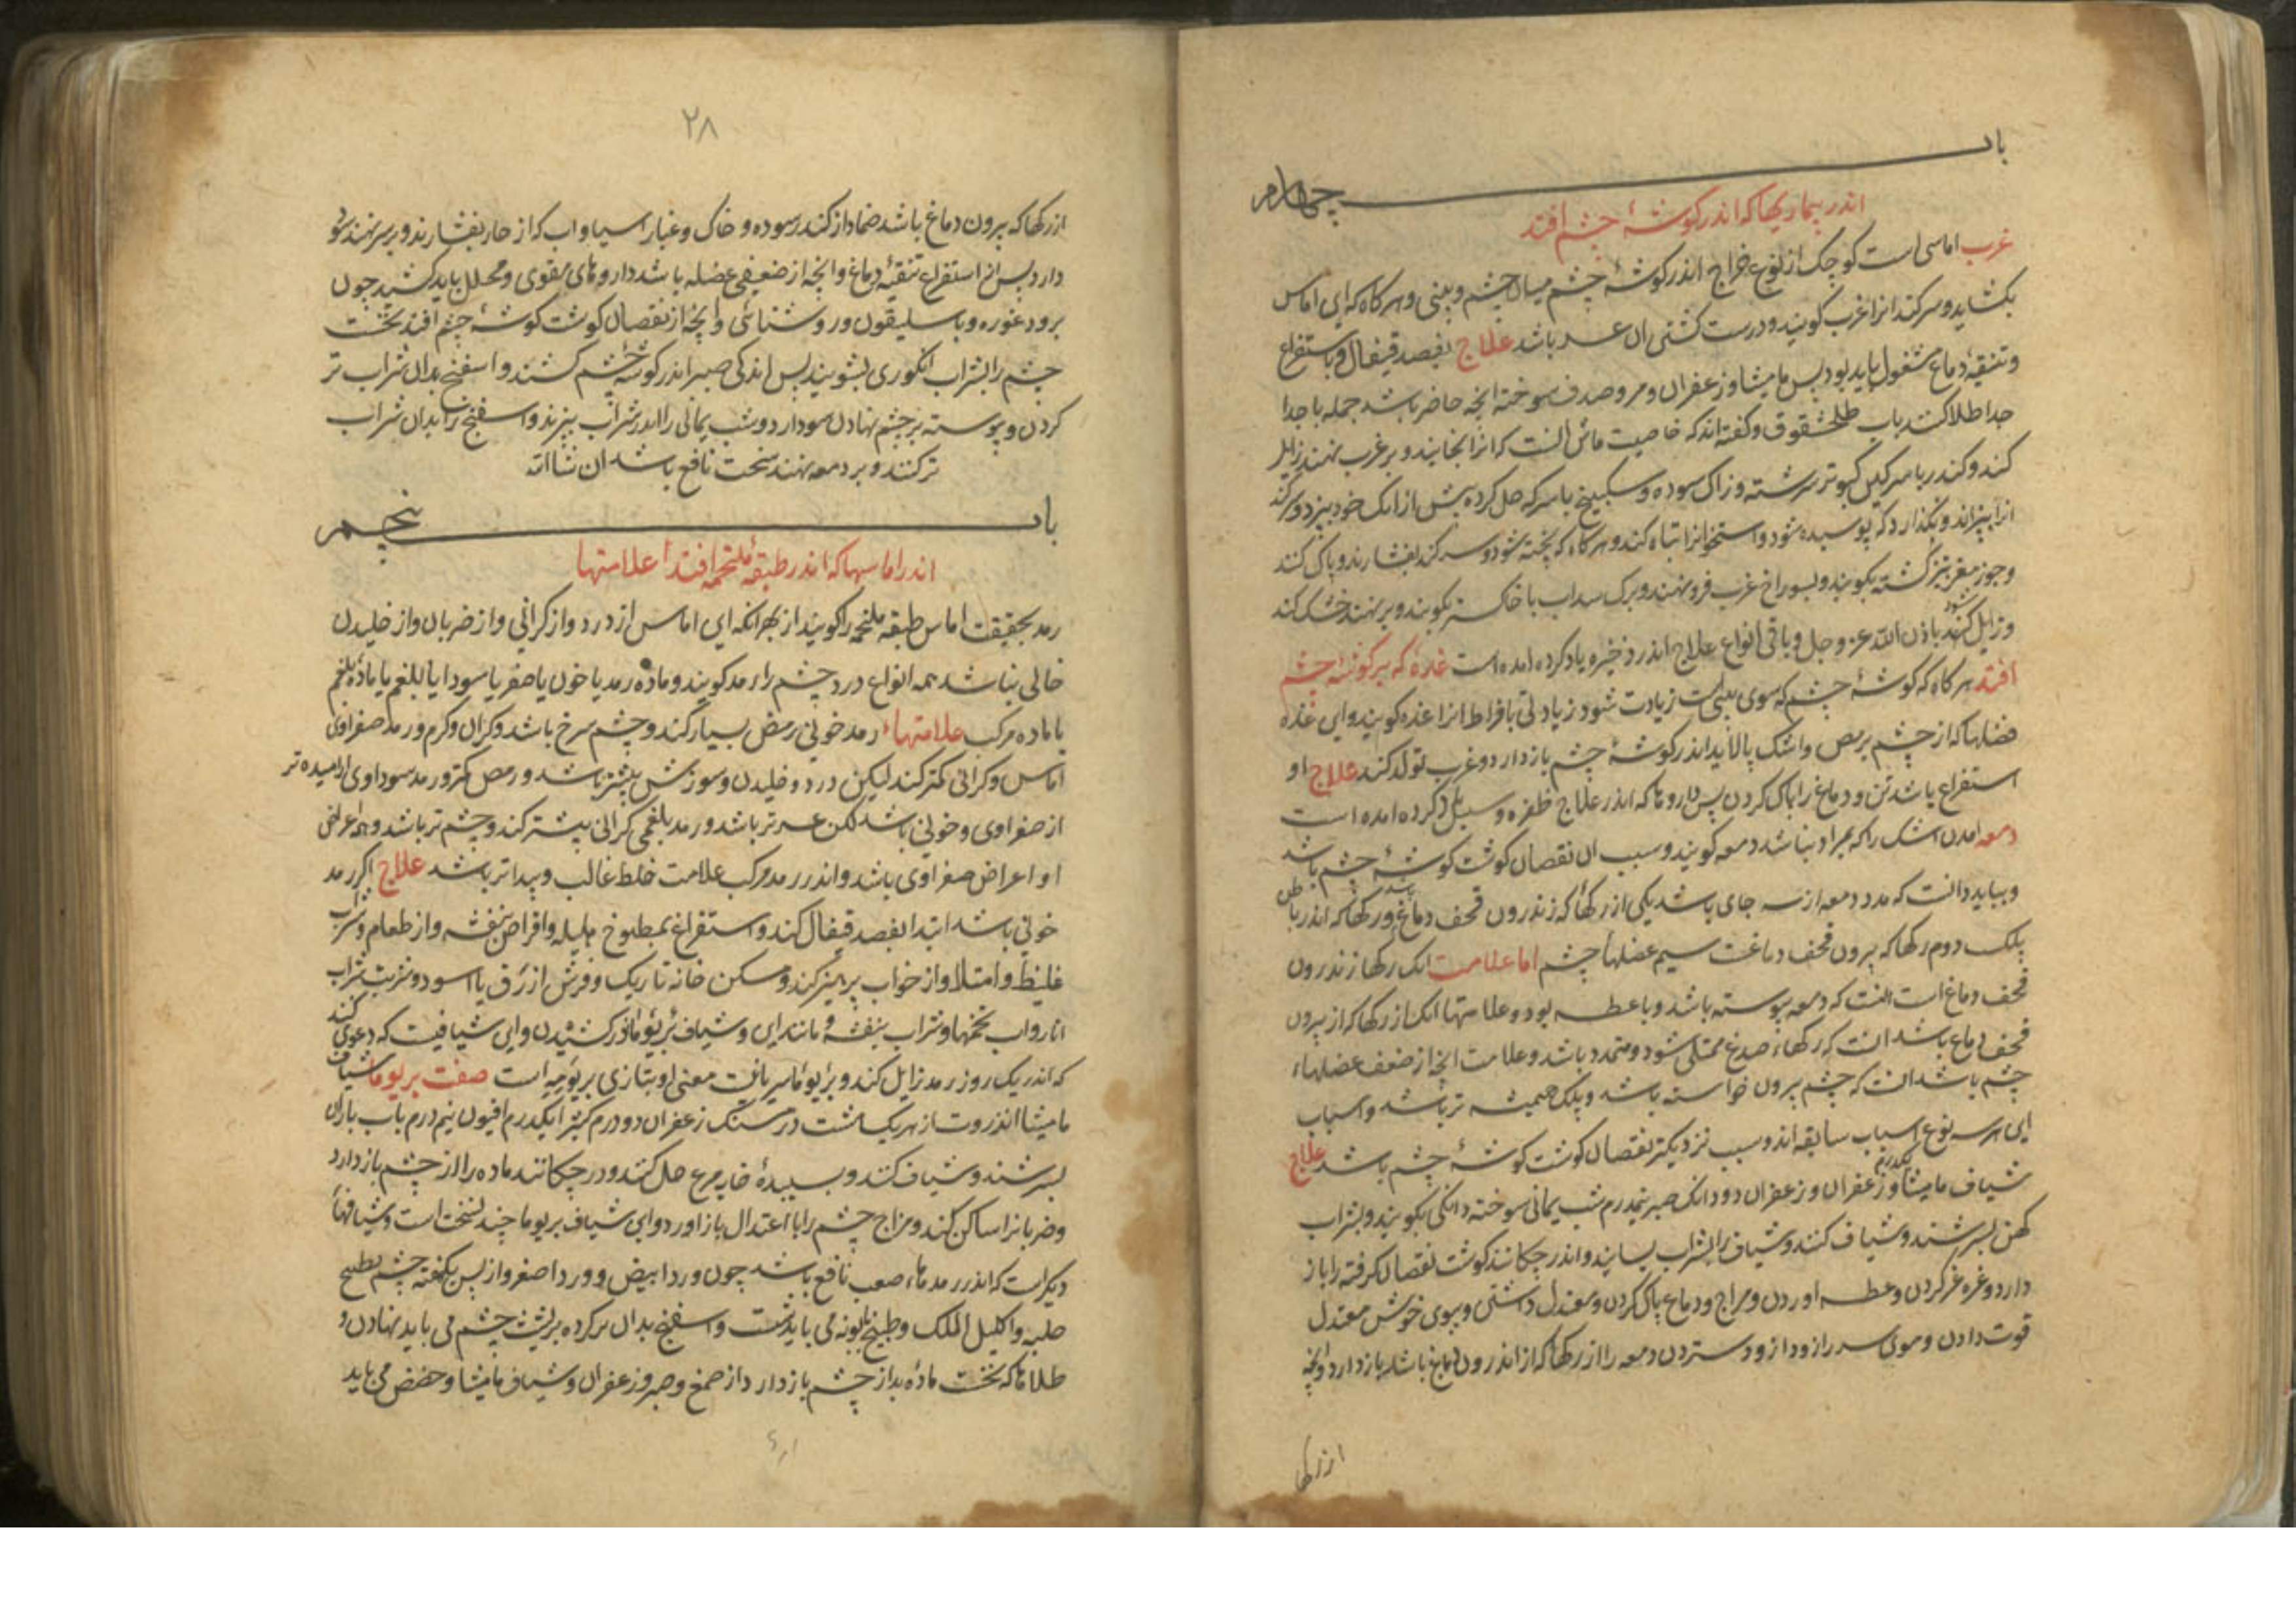 باب چهارم
اندر بیماریها که اندر کوشهٔ چشم افتد
غرب اماسی است کوچک از نوع خراج اندر کوشهٔ چشم میان چشم و بینی و هر کاه که این اماس
بکشاید و سر کند انرا غرب کویند و درست کشتن ان عسر باشد علاج بفصد قیفال و باستفراغ
و تنقیهٔ دماغ مشغول باید بود پس مامیشا و زعفران و مر و صدف سوخته انچه حاضر باشد جمله یا جدا
جدا طلا کنند باب طلخشقوق و کفته اند که خاصیت ماش انست که انرا بخایند و بر غرب نهند زایل
کند و کندر با سرکین کبوتر سرشته و زاک سوده و سکبینج با سرکه حل کرده پیش از انک خود بپزد و سر کند
انرا بپزاند و نکذارد که پوسیده شود و استخوانرا تباه کند و هر کاه که پخته شود و سر کند بفشارند و پاک کنند
و جوز مغز تیز کشته بکویند و بسوراخ غرب فرو نهند و برک سداب با خاکستر بکویند و بر نهند خشک کند
و زایل کند باذن الله عز و جل و باقی انواع علاج اندر ذخیره یاد کرده امده است غده که بر کوشهٔ چشم
افتد هر کاه که کوشهٔ چشم که سوی بینی است زیادت شود زیادتی بافراط انرا غده کویند و این غده
فضلها که از چشم برمص و اشک پالاید اندر کوشهٔ چشم باز دارد و غرب تولد کند علاج او
استفراغ باشد تن و دماغ را پاک کردن پس داروها که اندر علاج ظفره و سبل یاد کرده امده است
دمعه امدن اشک را که بمراد نباشد دمعه کویند و سبب ان نقصان کوشت کوشهٔ چشم باشد
و بباید دانست که مدد دمعه از سه جای باشد یکی از رکها که زندرون قحف دماغ باشد و رکها که اندر باطن
پلک دوم رکها که بیرون قحف دماغست سیم عضلها چشم اما علامت انک رکها زندرون
قحف دماغ است انست که دمعه پیوسته باشد و با عطسه بود و علامتها انک از رکها که از بیرون
قحف دماغ باشد انست که رکهاء صدغ ممتلی شود و متمدد باشد و علامت انچه از ضعف عضلهاء
چشم باشد انست که چشم بیرون خواسته باشد و پلک همیشه تر باشد و اسباب
این هر سه نوع اسباب سابقه اند و سبب نزدیکتر نقصان کوشت کوشهٔ چشم باشد علاج
شیاف مامیشا و زعفران یکدرم و زعفران دو دانک صبر نیمدرم شب یمانی سوخته دانکی بکویند و بشراب
کهن بسرشند و شیاف کنند و شیاف را بشراب بسایند و اندر چکانند کوشت نقصان کرفته را باز
دارد و غرغره کردن و عطسه اوردن و مزاج و دماغ پاک کردن و معتدل داشتن و ببوی خوش معتدل
قوت دادن و موی سر را زود از زود ستردن دمعه را از رکها که از اندرون دماغ باشد باز دارد و انچه
از رکها
۲۸
از رکها که بیرون دماغ باشد ضماد از کندر سوده و خاک و غبار اسیا و اب که از خار بفشارند و بر سر نهند سود
دارد پس از استفراغ تنقیهٔ دماغ و انچه از ضعیفی عضله باشد داروهای مقوی و محلل باید کشید چون
برود غوره و باسلیقون و روشنائی و انچه از نقصان کوشت کوشهٔ چشم افتد نخست
چشم را بشراب انکوری بشویند پس اندکی صبر اندر کوشهٔ چشم کشند و اسفنج بدان شراب تر
کردن و پیوسته بر چشم نهادن سود دارد و شب یمانی را اندر شراب بپزند و اسفنج را بدان شراب
تر کنند و بر دمعه نهند سخت نافع باشد ان شاالله
باب پنجم
اندر اماسها که اندر طبقهٔ ملتحمه افتد علامتها
رمد بحقیقت اماس طبقه ملتحمه را کویند از بهر انکه این اماس از درد و از کرانی و از ضربان و از خلیدن
خالی نباشد همه انواع درد چشم را رمد کویند و ماده رمد یا خون یا صفرا یا سودا یا بلغم یا مادهٔ بلغم
یا ماده مرکب علامتهاء رمد خونی رمض بسیار کند و چشم سرخ باشد و کران و کرم و رمد صفراوی
اماس و کرانی کمتر کند لیکن درد و خلیدن و سوزش بیشتر باشد و رمص کمتر و رمد سوداوی ارامیده تر
از صفراوی و خونی باشد لکن عسرتر باشد و رمد بلغمی کرانی بیشتر کند و چشم تر باشد و همه اعراض
او اعراض صفراوی باشد و اندر رمد مرکب علامت خلط غالب و پیداتر باشد علاج اکر رمد
خونی باشد ابتدا بفصد قیفال کند و استفراغ بمطبوخ هلیله و اقراص بنفشه و از طعام و شراب
غلیظ و امتلا و از خواب پرهیز کند و مسکن خانه تاریک و فرش ازرق یا اسود و شربت شراب
انار و اب تخمها و شراب بنفشه و مانند این و شیاف بریوما اندر کشیدن و این شیافیست که دعوی کند
که اندر یک روز رمد زایل کند و بریوما سریانیست معنی او بتازی بریومیه است صفت بریوما شیاف
مامیشا انذروت از هر یک هشت درمسنک زعفران دو درم کتیرا یکدرم افیون نیم درم باب باران
بسرشند و شیاف کنند و بسپیدهٔ خایه مرغ حل کنند و در چکانند ماده را از چشم باز دارد
و ضربانرا ساکن کند و مزاج چشم را با اعتدال باز اورد و این شیاف بریوما چند نسخت است و شیافها
دیکر است که اندر رمدهاء صعب نافع باشد چون ورد ابیض و ورد اصفر و از پس یکهفته چشم بطبیخ
حلبه و اکلیل الملک و طبیخ بابونه می باید شست و اسفنج بدان تر کرده بر پشت چشم می باید نهادن و
طلاها که نخست مادهٔ بد از چشم باز دارد از صمغ و صبر و زعفران و شیاف مامیشا و حضض می باید